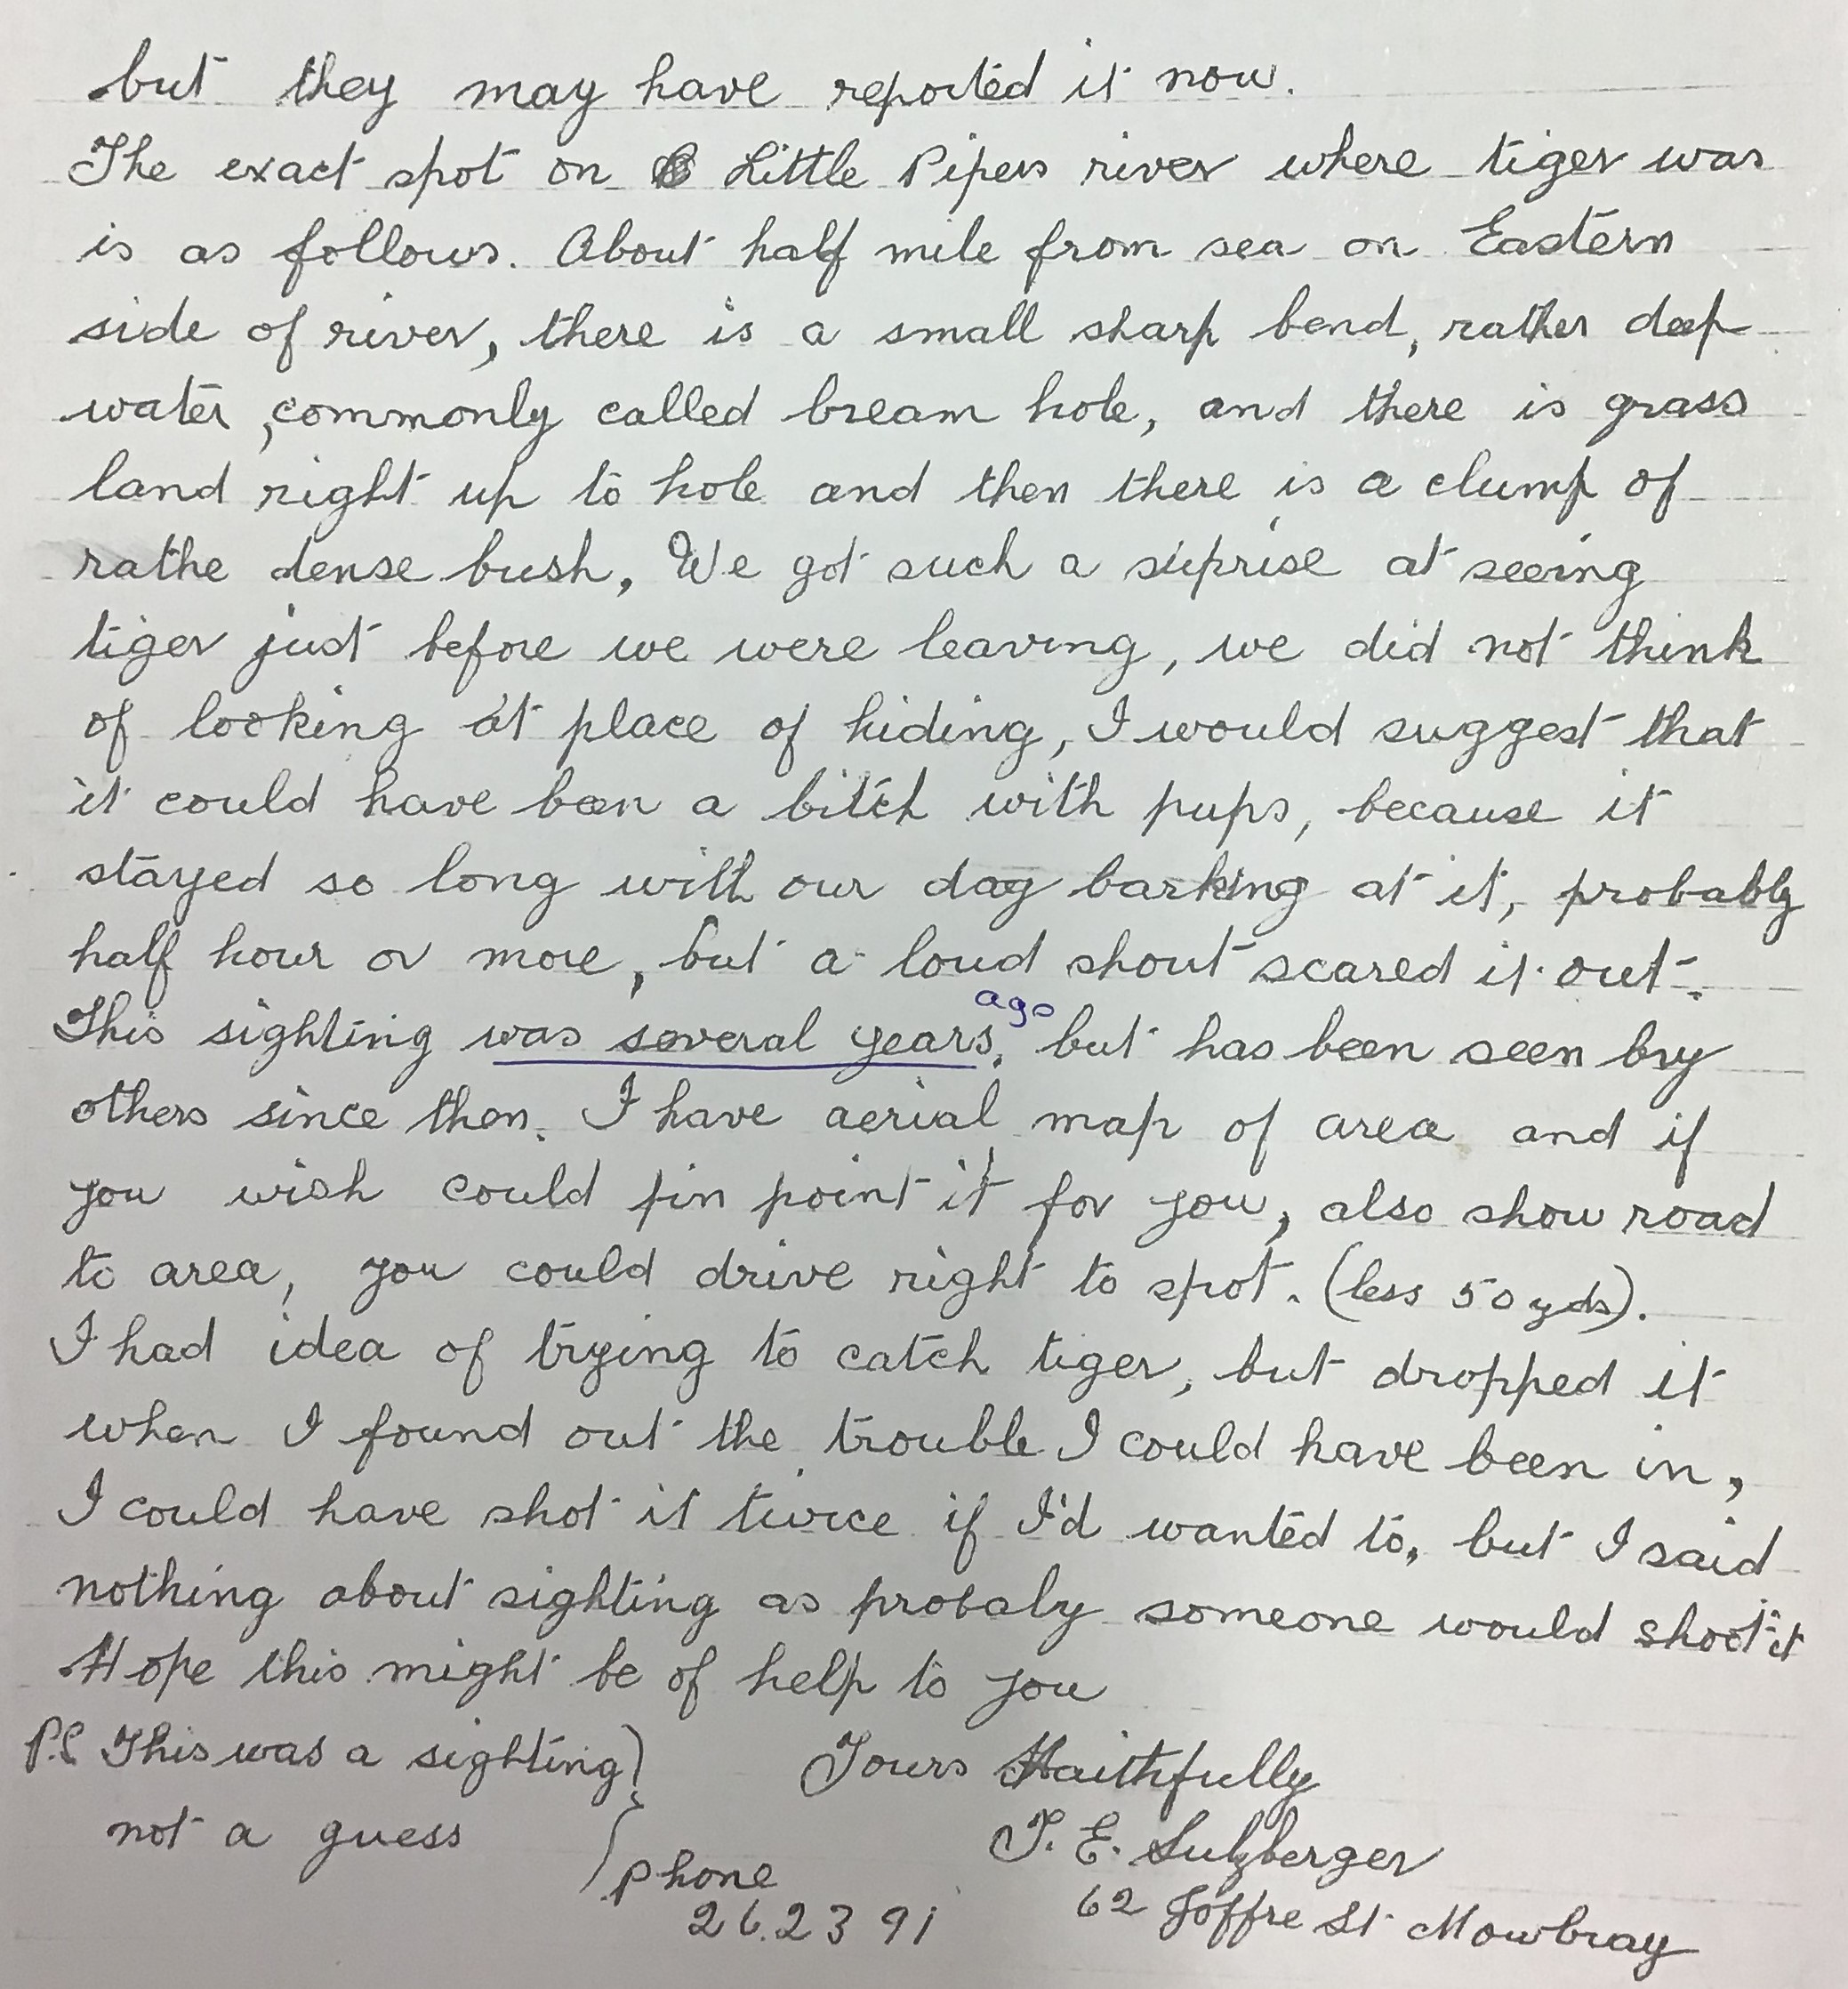 but they may have reported it now.
The exact spot on Little Pipers river where tiger was
is as follows. About half mile from sea on Eastern
side of river, there is a small sharp bend, rather deep
water, commonly called bream hole, and there is grass
land right up to hole and then there is a clump of
rathe dense bush, We got such a suprise at seeing
tiger just before we were leaving, we did not think
of looking at place of hiding, I would suggest that
it could have been a bitch with pups, because it
stayed so long with our dog barking at it, probably
half hour or more, but a loud shout scared it out.
This sighting was several years ago, but has been seen by
others since then. I have aerial map of area and if
you wish could pin point it for you, also show road
to area, you could drive right to spot. (less 50 yds).
I had idea of trying to catch tiger, but dropped it
when I found out the trouble I could have been in,
I could have shot it twice if I'd wanted to, but I said
nothing about sighting as probaly someone would shoot it
Hope this might be of help to you
P.S This was a sighting
not a guess
Yours Faithfully
T. E. Sulzberger
62 Joffre St Mowbray
Phone
26.2391